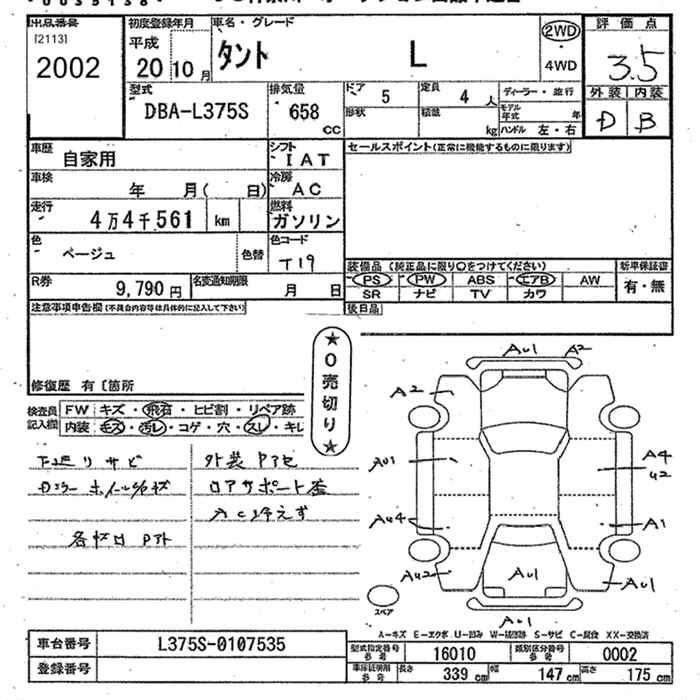 出品番号
[2113]
2002
初度登録年月
平成
20 10 月
車名・グレード
タント L
2WD
・
4WD
評価点
3.5
外装 内装
D B
型式
DBA-L375S
排気量
658
CC
ドア
5
定員
4 人
形状
積載
kg
ディーラー・並行
モデル年式 年
ハンドル 左・右
車歴
自家用
シフト
IAT
セールスポイント(正常に機能するものに限ります)
車検
年 月( 日)
冷房
AC
走行
4万4千561 km
燃料
ガソリン
色
ベージュ
色替
色コード
T19
R券
9,790 円
名変通知期限
月 日
装備品 (純正品に限り○をつけてください)
新車保証書
PS PW ABS エアB AW
有・無
SR ナビ TV カワ
注意事項申告欄(不具合内容等は具体的に記入して下さい)
後日品
★0売切り★
修復歴 有 〔箇所
検査員記入欄
FW キズ・飛石・ヒビ割・リペア跡
内装 キズ・汚レ・コゲ・穴・スレ・キレ
下廻りサビ
外装
ホイール
ロアサポート歪
AC冷えず
AU1 A2
A2
AU1
A4
U2
AU4
A1
AU2
AU1
AU1
AU1
スペア
A-キズ E-エクボ U-凹み W-補修跡 S-サビ C-腐食 XX-交換済
車台番号
L375S-0107535
登録番号
型式指定番号
参考
16010
類別区分番号
参考
0002
車庫証明用
参考
長さ 339 cm 幅 147 cm 高さ 175 cm